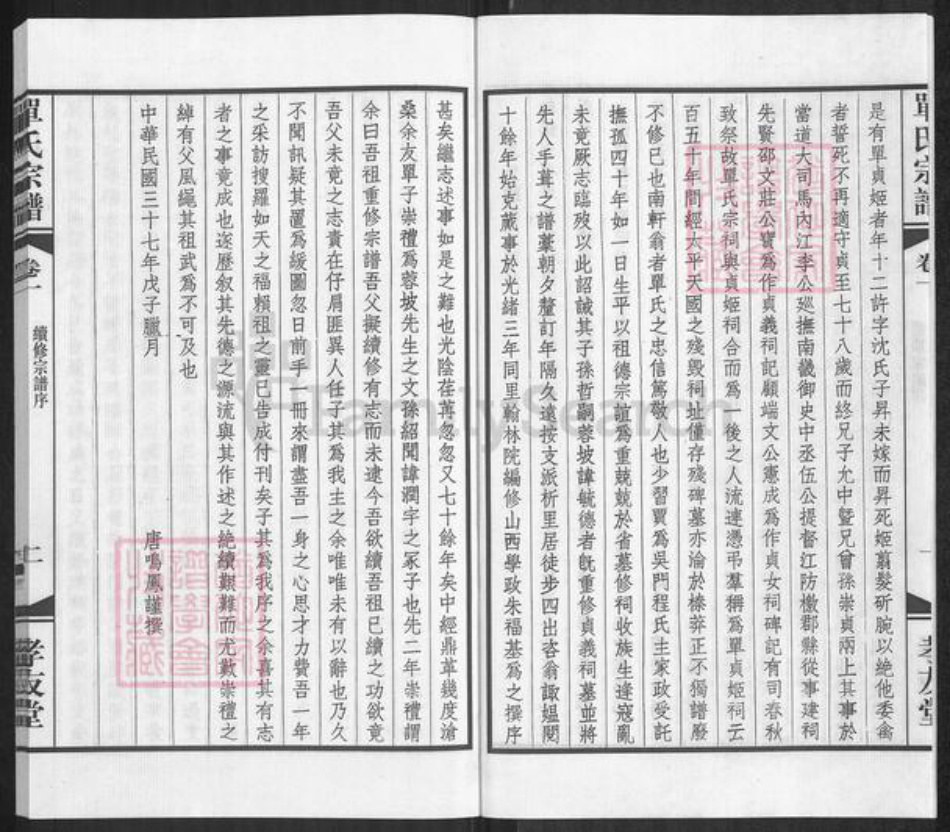 單氏宗譜 卷一 孝友堂
是有單貞姬者年十二許字沈氏子昇未嫁而昇死姬翦髮斫腕以絶他委禽
者誓死不再適守貞至七十八歲而終兄子允中曁兄曾孫崇貞兩上其事於
當道大司馬內江李公廵撫南畿御史中丞伍公提督江防檄郡縣從事建祠
先賢邵文莊公寶爲作貞義祠記顧端文公憲成爲作貞女祠碑記有司春秋
致祭故單氏宗祠與貞姬祠合而爲一後之人流連憑弔羣稱爲單貞姬祠云
百五十年間經太平天國之殘毀祠址僅存殘碑墓亦淪於榛莽正不獨譜廢
不修已也南軒翁者單氏之忠信篤敬人也少習賈爲吳門程氏主家政受託
撫孤四十年如一日生平以祖德宗誼爲重兢兢於省墓修祠收族生逢寇亂
未竟厥志臨歿以此詔誡其子孫哲嗣蓉坡諱毓德者旣重修貞義祠墓並將
先人手葺之譜藁朝夕釐訂年隔久遠按支派析里居徒步四出咨翁諏媼閱
十餘年始克蕆事於光緒三年同里翰林院編修山西學政朱福基爲之撰序
甚矣繼志述事如是之難也光陰荏苒忽忽又七十餘年矣中經鼎革幾度滄
桑余友單子崇禮爲蓉坡先生之文孫紹聞諱潤字之冢子也先二年崇禮謂
余曰吾祖重修宗譜吾父擬續修有志而未逮今吾欲續吾祖已續之功欲竟
吾父未竟之志責在仔肩匪異人任子其爲我主之余唯唯未有以辭也乃久
不聞訊疑其置爲緩圖忽日前手一冊來謂盡吾一身之心思才力費吾一年
之采訪搜羅如天之福賴祖之靈已告成付刊矣子其爲我序之余喜其有志
者之事竟成也遂歷叙其先德之源流與其作述之絶續艱難而尤歎崇禮之
綽有父風繩其祖武爲不可及也
中華民國三十七年戊子臘月
唐鳴鳳謹撰
單氏宗譜 卷一 續修宗譜序 二 孝友堂
FamilySearch